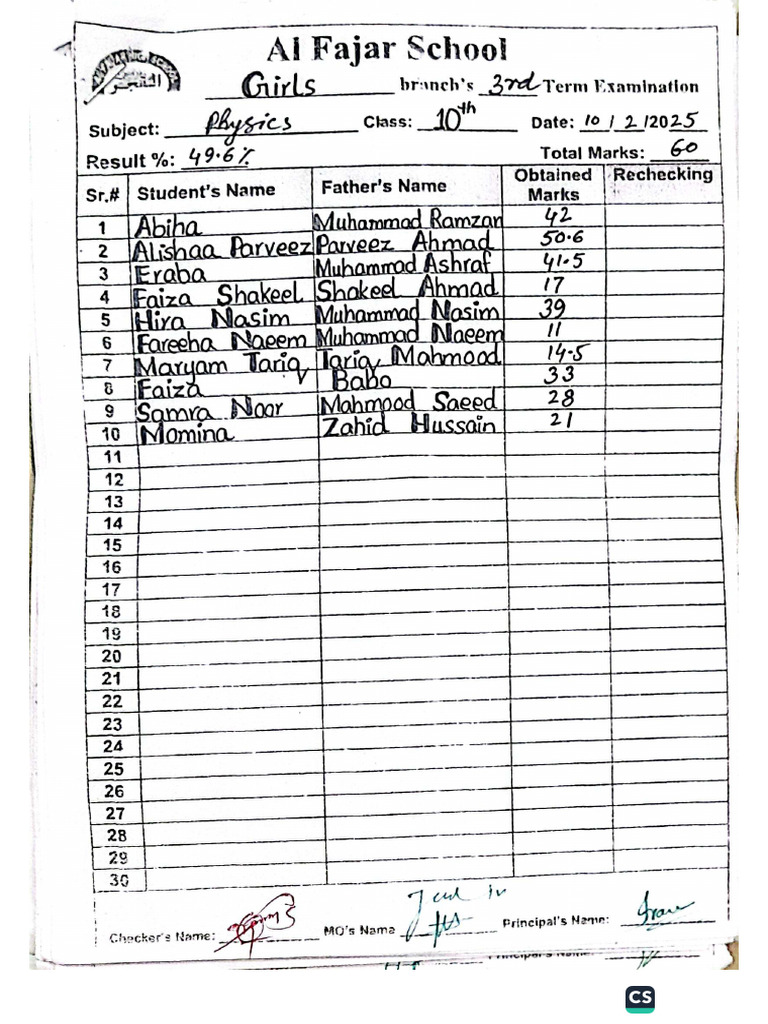 Al Fajar School
Girls branch's 3rd Term Examination
Subject: Physics Class: 10th Date: 10/2/2025
Result %: 49.6% Total Marks: 60
Sr.# Student's Name Father's Name Obtained Marks Rechecking
1 Abiha Muhammad Ramzan 42
2 Alishaa Parveez Parveez Ahmad 50.6
3 Eraba Muhammad Ashraf 41.5
4 Faiza Shakeel Shakeel Ahmad 17
5 Hira Nasim Muhammad Nasim 39
6 Fareeha Naeem Muhammad Naeem 11
7 Maryam Tariq Tariq Mahmood 14.5
8 Faiza Babo 33
9 Samra Noor Mahmood Saeed 28
10 Momina Zahid Hussain 21
11
12
13
14
15
16
17
18
19
20
21
22
23
24
25
26
27
28
29
30
Checker's Name: MO's Name Principal's Name:
CS